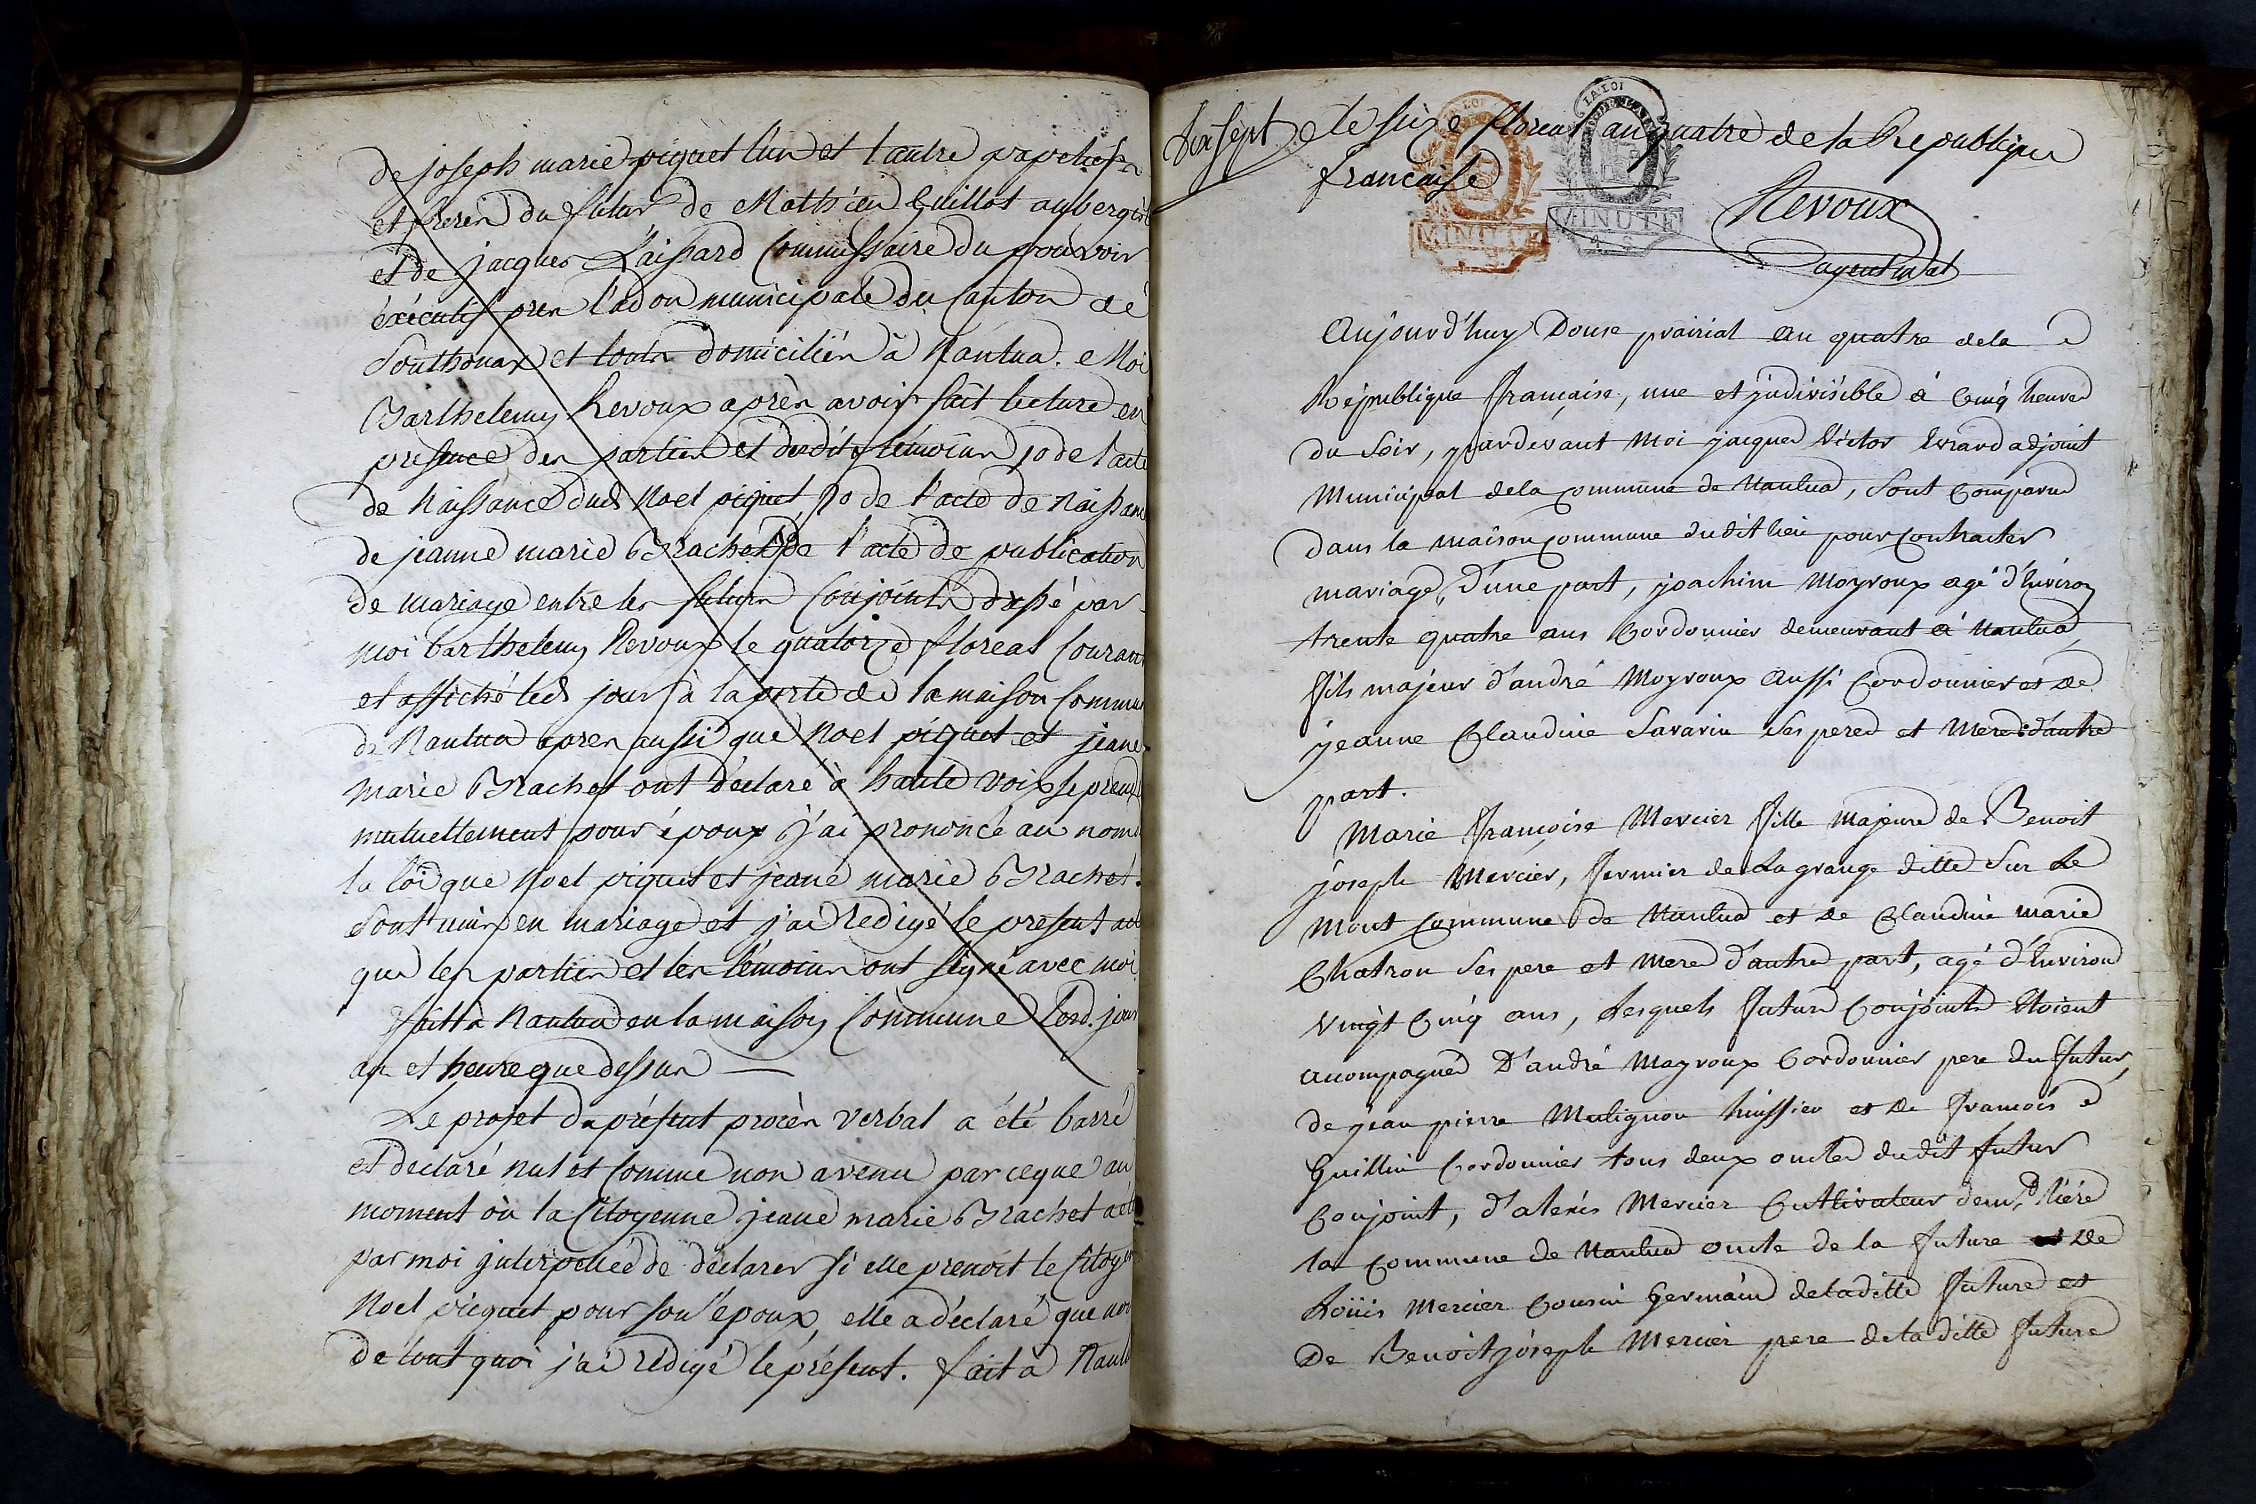 de joseph marie piquet lun et lautre papetiers
et freres du futur de Mathieu Guillot aubergiste
et de jacques Laissard Commissaire du pouvoir
éxécutif pres l'adon municipale du Canton de
Sonthonax et tous domiciliés à Nantua. Moi
Barthelemy Revoux après avoir fait lecture en
presence des parties et desdits témoins 1o de l'acte
de Naissance dud Noel piquet, 2o de l'acte de naissance
de jeanne marie Brachet 3o de l'acte de publication
de mariage entre les futurs Conjoints dressé par
moi barthelemy Revoux le quatorze floreal Courant
et affiché led jour à la porte de la maison Commune
de Nantua apres aussi que Noel piquet et jeane
marie Brachet ont déclaré à haute voix se prendre
mutuellement pour époux j'ai prononcé au nom de
la loi que Noel piquet et jeane marie Brachet
sont unis en mariage et j'ai redigé le present acte
que les parties et les témoins ont signé avec moi
fait à Nantua en la maison Commune Lesd. jour
an et heure que dessus
Le projet du présent procès verbal a été barré
et déclaré nul et comme non avenu parceque au
moment où la Citoyenne jeane marie Brachet a été
par moi interpellée de déclarer si elle prenoit le Citoyen
Noel picquet pour son époux, elle a déclaré que non
de tout quoi j'ai rédigé le présent. fait à Nantua
dix sept le seize floreal an quatre de la Republique
française
LA LOI
MINUTE
LA LOI
MINUTE
Revoux
agent mal
Aujourd'huy Douse prairial an quatre dela
République française, une et jndivisible à Cinq heures
du Soir, pardevant Moi jacques Victor Evrard adjoint
Municipal dela commune de Nantua, Sont Comparus
dans la maison commune dudit lieu pour Contracter
mariage, d'une part, joachim Moyroux agé d'Environ
trente quatre ans Cordonnier demeurant à Nantua,
fils majeur d'andré Moyroux aussi Cordonnier et de
jeanne Claudine Savarin Ses pere et Mere d'autre
part.
Marie françoise Mercier fille majeure de Benoit
joseph Mercier, fermier de La grange ditte Sur Le
Mont commune de Nantua et de Claudine marie
Chatron Ses pere et Mere d'autre part, agé d'Environ
vingt Cinq ans, Lesquels futurs Conjoints Etoient
acompagnes D'andré Moyroux Cordonnier pere du futur,
de jean pierre Mulignon huissier et de francois
Guillin Cordonnier tous deux oncles dudit futur
Conjoint, d'alexis Mercier Cultivateur demt. rière
la commune de Nantua oncle de la future et de
Loüis Mercier Cousin Germain deladitte future et
De Benoit joseph Mercier pere deladitte future